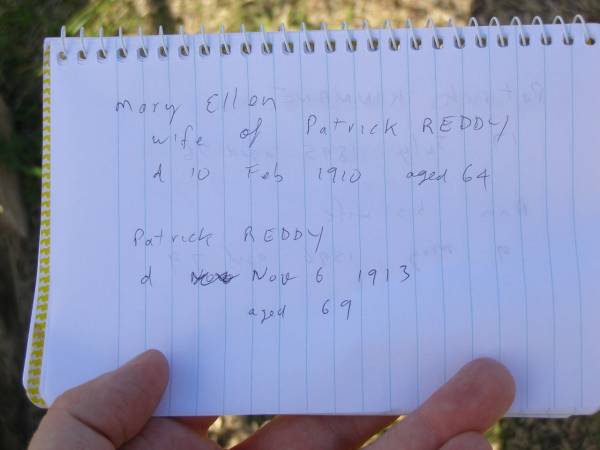 Mary Ellen
wife of Patrick REDDY
d 10 Feb 1910 aged 64
Patrick REDDY
d Nov 6 1913
aged 69